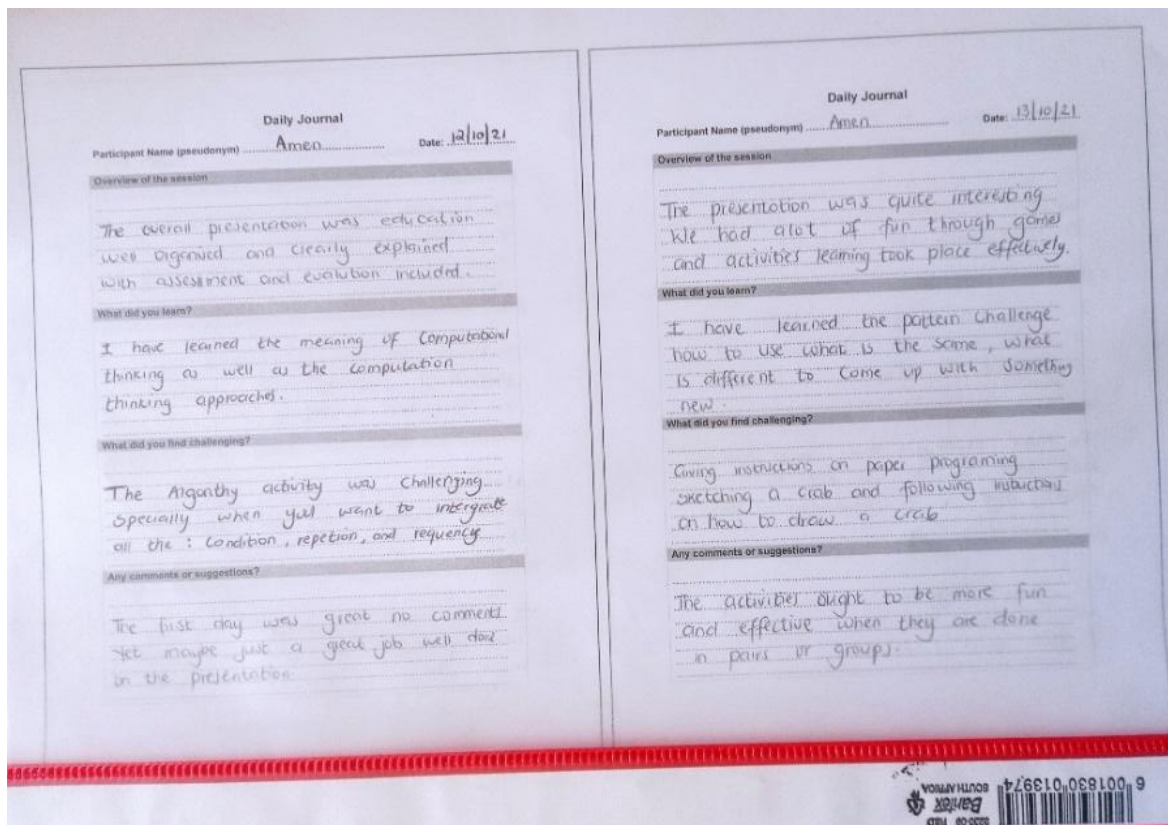 Daily Journal
Participant Name (pseudonym) Amen Date: 12/10/21
Overview of the session
The overall presentation was education
well organised and clearly explained
with assessment and evalution included.
What did you learn?
I have learned the meaning of Computational
thinking as well as the computation
thinking approaches.
What did you find challenging?
The Algorithy activity was challenging
specially when you want to intergrate
all the : Condition, repetion, and requency
Any comments or suggestions?
The first day was great no comments
Yet maybe just a great job well done
on the presentation.
Daily Journal
Participant Name (pseudonym) Amen Date: 13/10/21
Overview of the session
The presentation was quite interesting
We had alot of fun through games
and activities learning took place effectively.
What did you learn?
I have learned the pattern Challenge
how to use what is the same, what
is different to come up with something
new.
What did you find challenging?
Giving instructions on paper programing
sketching a crab and following instructions
on how to draw a crab
Any comments or suggestions?
The activities ought to be more fun
and effective when they are done
in pairs or groups.
6 001830 013974
SOUTH AFRICA
Bantex